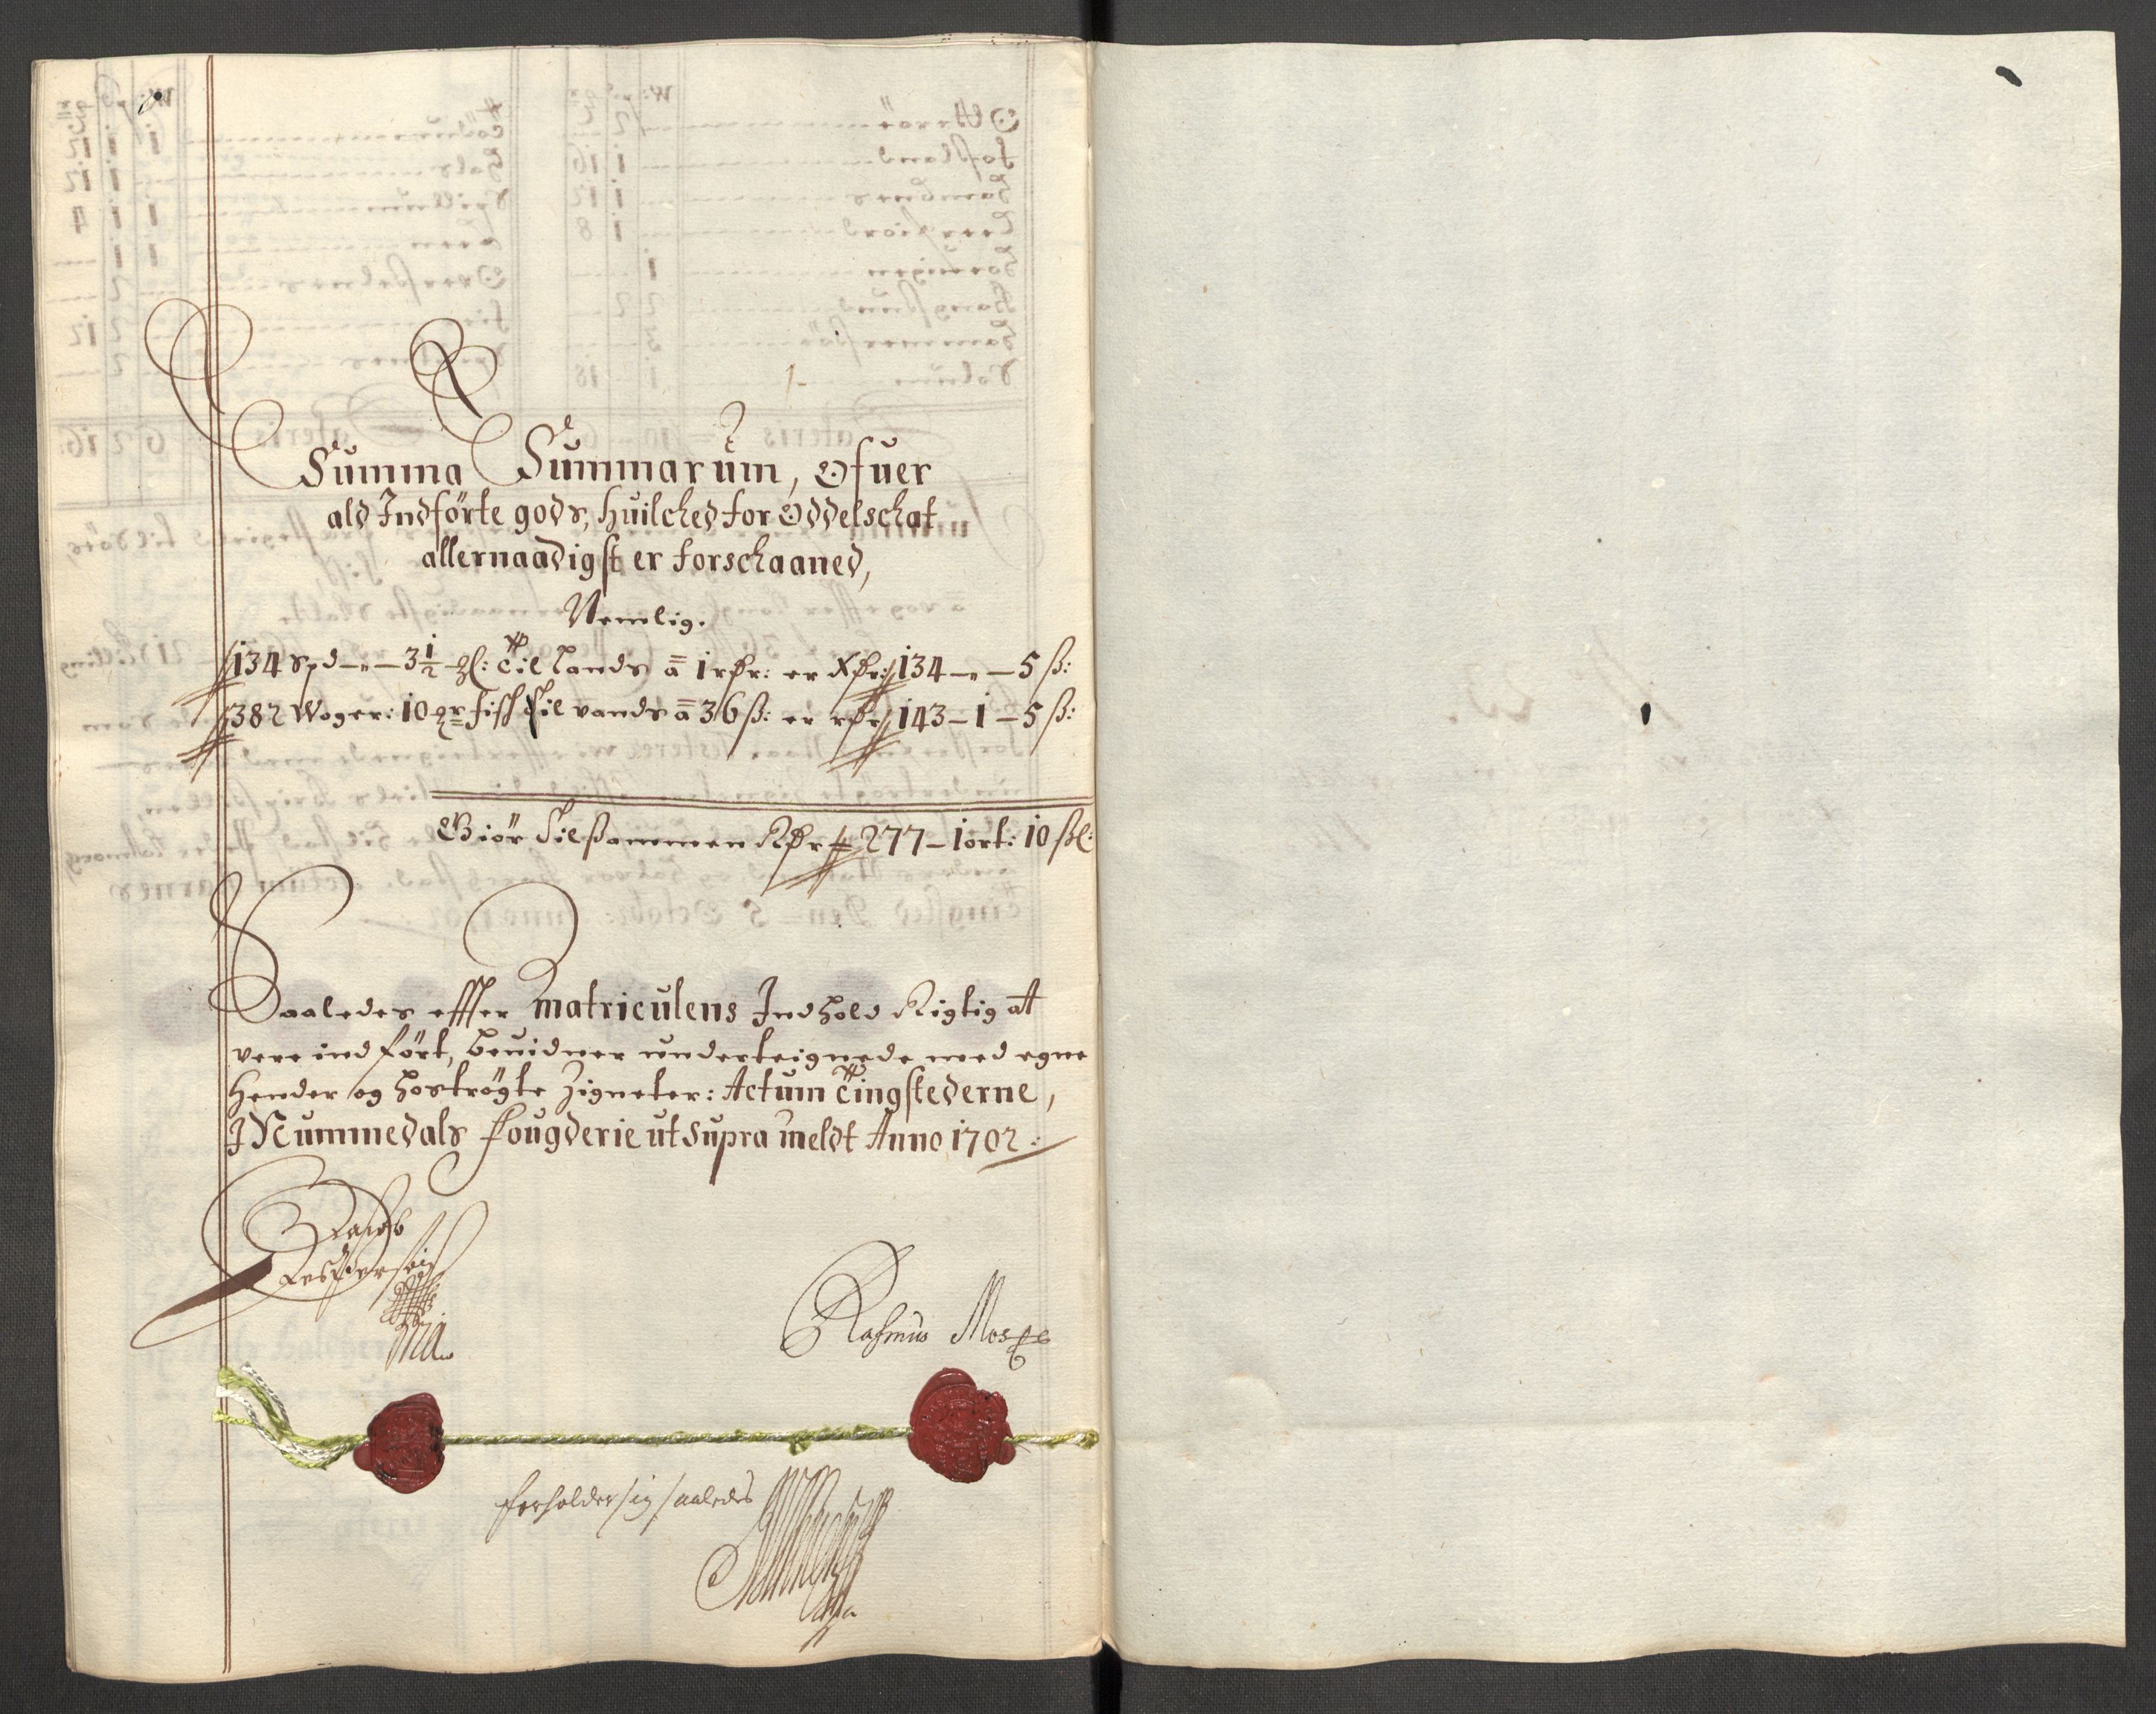 Summa Summarum, Ofuer
ald Indförte gods, huilched for Oddelschat
allernaadigst er forschaaned,
Nemlig.
134 Spd – „ – 3 1/2 gl: Til Lands ā 1 rdr: er Rdr: 134 – „ – 5 ß:
382 Woger: 10 gr fish Til vands ā 36 ß: er rdr 143 – 1 – 5 ß:
Giör Tilsammen Rdr 277 – 1 ort: 10 ßl:
Saaledes effter Matriculens Indhold Rigtig at
vere ind fört, beuidner underteignede med egne
Hender og hoströgte Zigneter: Actum Tingstederne,
I Nummedals fougderie ut Supra meldt Anno 1702:
Rasmus
forholder sig saaledes